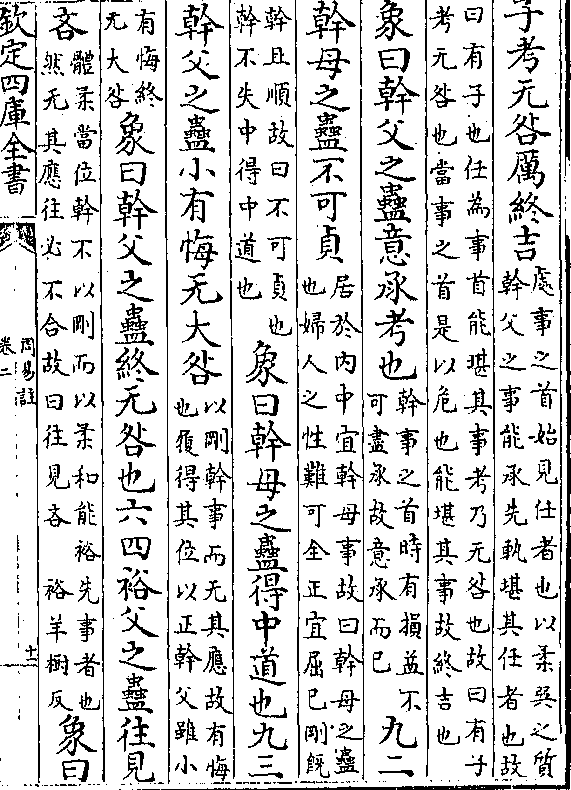 子考无咎厲終吉處事之首始見任者也以柔巽之質幹父之事能承先軌堪其任者也故
曰有子也任為事首能堪其事考乃无咎也故曰有子考无咎也當事之首是以危也能堪其事故終吉也
象曰幹父之蠱意承考也幹事之首時有損益不可盡承故意承而已九二
幹母之蠱不可貞居於內中宜幹母事故曰幹母之蠱也婦人之性難可全正宜屈已剛旣
幹且順故曰不可貞也幹不失中得中道也象曰幹母之蠱得中道也九三
幹父之蠱小有悔无大咎以剛幹事而无其應故有悔也履得其位以正幹父雖小
有悔終无大咎象曰幹父之蠱終无咎也六四裕父之蠱往見
吝體柔當位幹不以剛而以柔和能裕先事者也然无其應往必不合故曰往見吝 裕羊樹反象曰
欽定四庫全書
周易註
卷二
十二